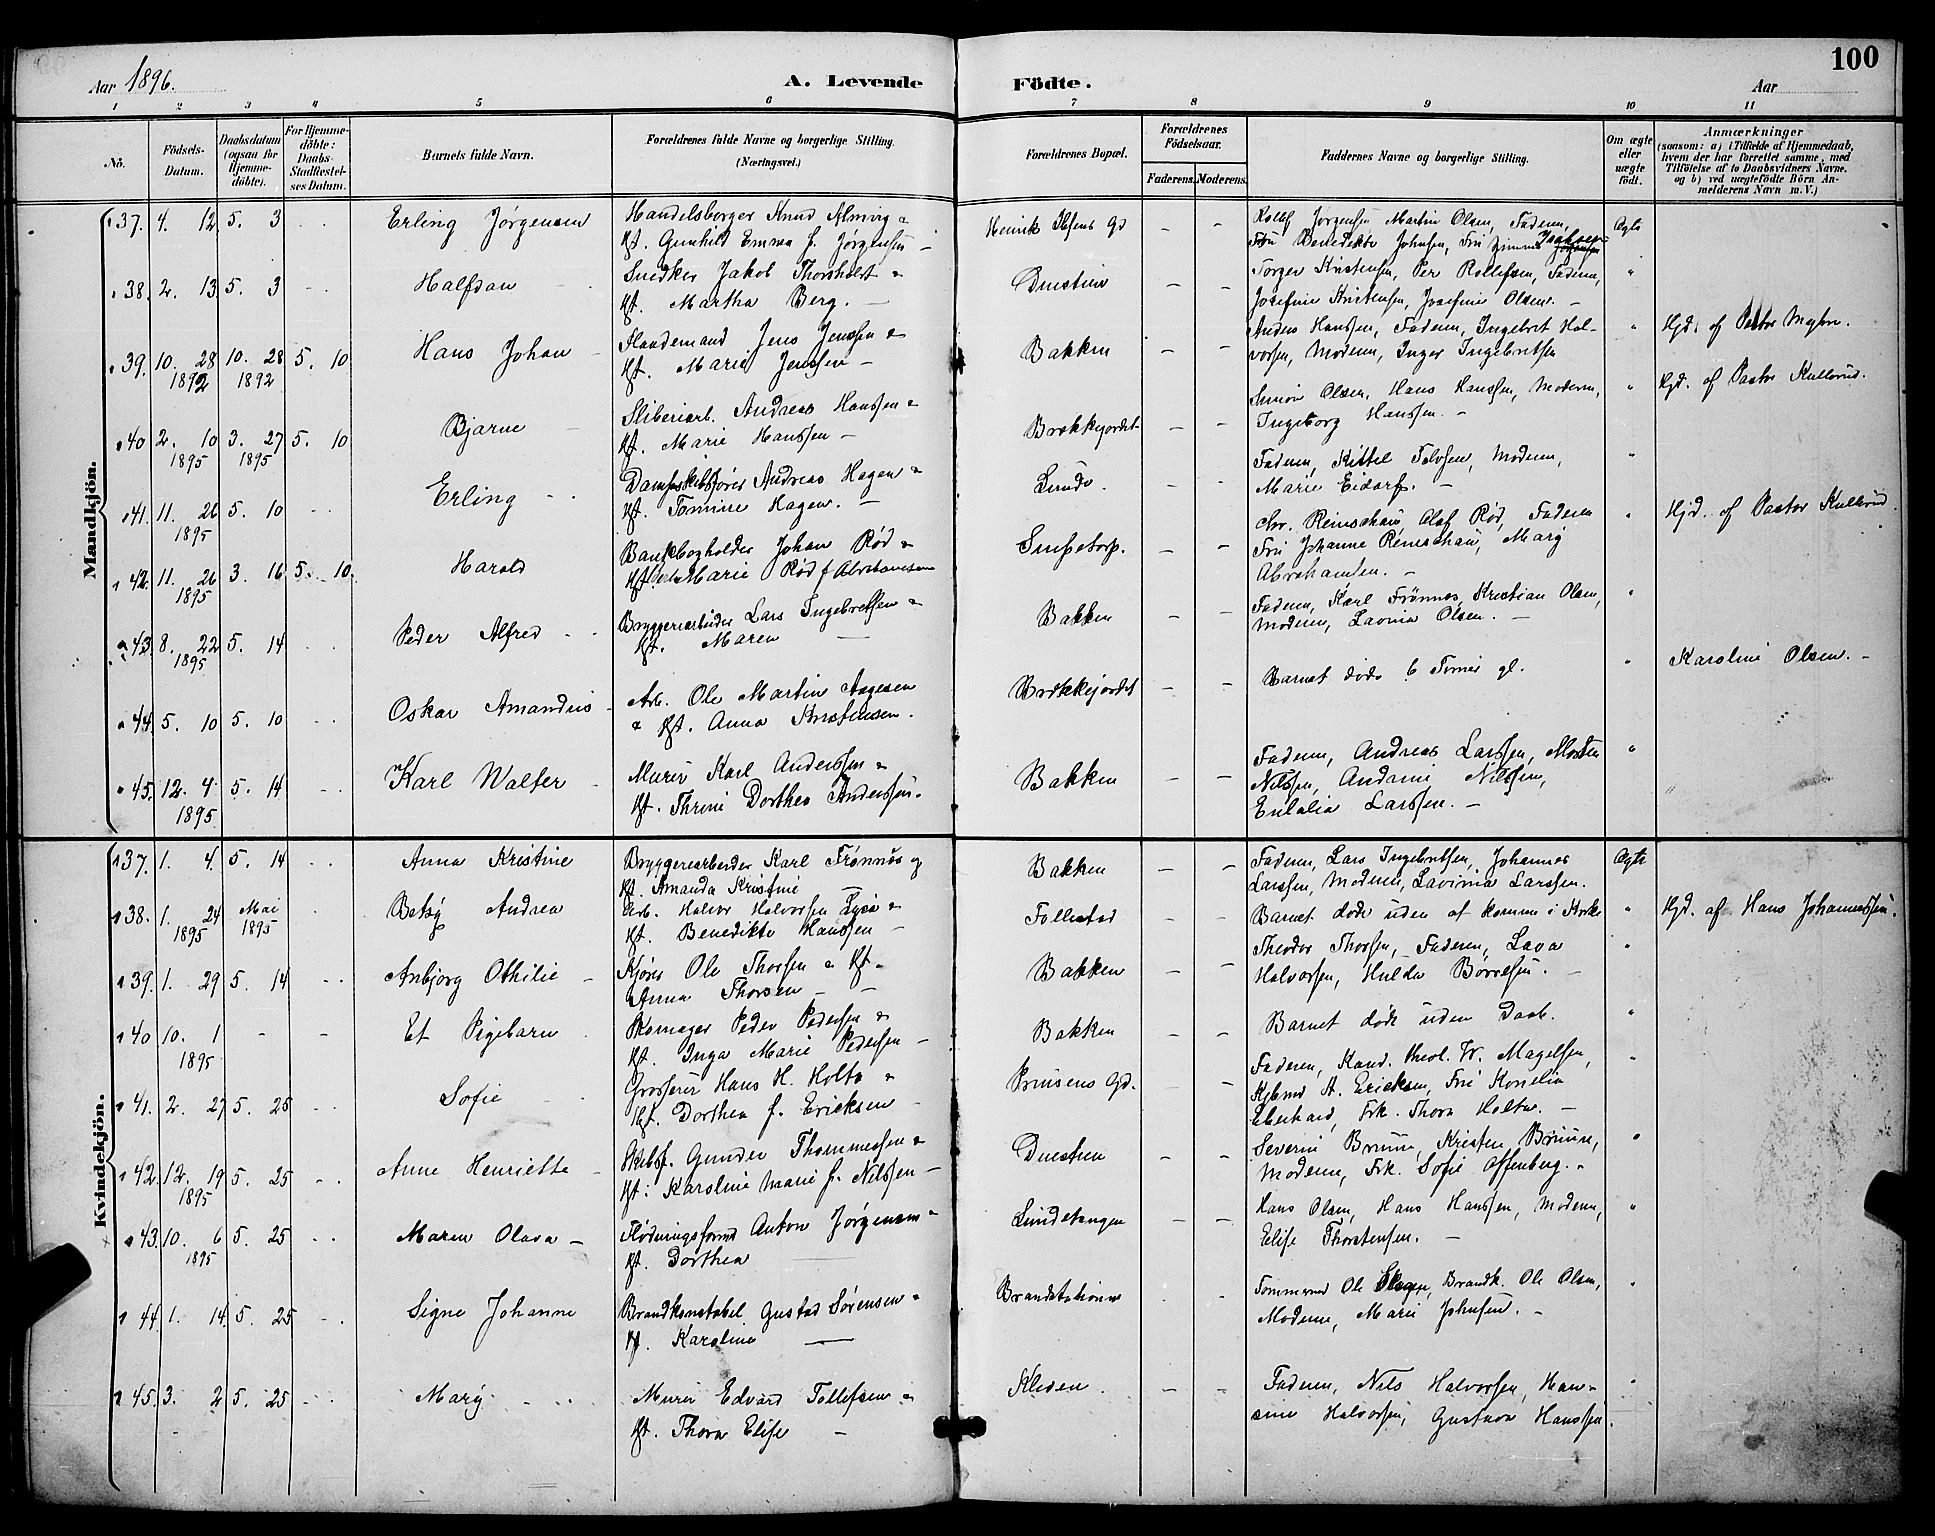 Aar 1896.
A. Levende
Födte.
Aar
100
1 2 3 4 5 6 7 8 9 10 11
No.
Födsels-Datum.
Daabsdatum (ogsaa for Hjemme-döbte).
For Hjemme-döbte: Daabs-Stadfæstel-ses Datum.
Barnets fulde Navn.
Forældrenes fulde Navne og borgerlige Stilling. (Næringsvei.)
Forældrenes Bopæl.
Forældrenes Födselsaar.
Faderens. Moderens.
Faddernes Navne og borgerlige Stilling.
Om ægte eller uægte födt.
Anmærkninger
(saasom: a) i Tilfælde af Hjemmedaab, hvem der har forrettet samme, med Tilföielse af to Daabsvidners Navne, og b) ved uægtefödte Börn An-melderens Navn m. V.)
Mandkjön.
37. 4. 12. 5. 3 Erling Jörgensen
Handelsborger Knud Almvig &
Hf. Gunhild Emma f. Jörgensen
Henrik Ibsens Gd
Rollef Jörgensen, Martin Olsen, Faderen,
Fru Benedikte Johnsen,
Ægte
38. 2. 13. 5. 3 Halfdan
Snedker Jakob Thorsholt &
Hf. Martha Berg.
Duestien
Torger Kristensen, Per Rollefsen, Faderen,
Josefine Kristensen, Josefine Olsen.
39. 10. 28 1892 10. 28 1892 5. 10 Hans Johan
Flaademand Jens Jenssen &
Hf. Marie Jenssen
Bakken
Anders Hanssen, Faderen, Ingebret Hal-
vorsen, Moderen, Inger Ingebretsen
Hjd. af Pastor
40 2. 10 1895 3. 27 1895 5. 10 Bjarne
Sliberiarb. Andreas Hanssen &
Hf. Marie Hanssen
Brekkejordet
Simon Olsen, Hans Hanssen, Moderen,
Ingeborg Hanssen.
Hjd. af Pastor Kullerud.
41. 11. 26 1895 5. 10 Erling
Dampskibsförer Andreas Hagen &
Hf. Tomine Hagen.
Lunde.
Faderen, Kittel Tolvsen, Moderen,
Marie
42. 11. 26 1895 3. 16 5. 10. Harald
Bankbogholder Johan Röd &
Hf. Marie Röd f. Abrahamsen
Snipetorp.
Chr. Reinschau, Olaf Röd, Faderen
Fru Johanne Reinschau, Mary
Abrahamsen.
Hjd. af Pastor Kullerud.
43. 8. 22 1895 5. 14 Peder Alfred
Bryggeriarbeider Lars Ingebretsen &
Hf. Maren
Bakken
Faderen, Karl Frönnes, Kristian Olsen,
Moderen, Lavina Olsen.
44. 5. 10 5. 10 Oskar Amandus
Arb. Ole Martin Aagesen
& Hf. Anna Kristensen.
Brekkejordet
Barnet döde 6 Timer gl.
Karoline Olsen.
45. 12. 4. 1895 5. 14 Karl Walter
Murer Karl Anderssen &
Hf. Thrine Dorthea Anderssen.
Bakken
Faderen, Andreas Larssen, Morten
Nilssen, Andarine Nilssen,
Eulalia Larssen.
Kvindekjön.
37. 1. 4. 5. 14 Anna Kristine
Bryggeriarbeider Karl Frönnes og
Hf. Amanda Kristine
Bakken
Faderen, Lars Ingebretsen, Johannes
Larssen, Moderen, Lavinia Larssen.
Ægte
38. 1. 24 1895 Mai 1895 Betsy Andrea
Arb. Halvor Halvorsen &
Hf. Benedikte Hanssen
Follestad
Barnet döde uden at komme i Kirke
Hjd. af Hans Johannessen.
39. 1. 29 5. 14 Anbjorg Othilie
Kjörer Ole Thorsen & Hf.
Anna Thorsen
Bakken
Theodor Thorsen, Faderen, Lava
Halvorsen, Hulda Börresen.
40 10. 1 1895 Et Pigebarn
Skomager Peder Pedersen &
Hf. Inga Marie Pedersen
Bakken
Barnet döde uden Daab.
41. 2. 27 5. 25 Sofie
Grosserer Hans H. Holta &
Hf. Dorthea f. Ericksen
Prinsens Gd.
Faderen, Kand. theol. W. Magelsen,
Kjbmd A. Ericksen, Fru Konelia
Eberhard, Frk. Thora Holta.
42. 12. 19 1895 5. 25 Anne Henriette
Skibsf. Gunder Thommessen &
Hf. Karoline Marie f. Nilssen
Duestien
Severin Bruun, Kristen Bruun,
Moderen, Frk. Sofie Offenberg.
43. 10. 6 1895 5. 25 Maren Olava
Flödningsformd Anton Jörgensen &
Hf. Dorthea
Lundetangen
Hans Olsen, Hans Hanssen, Moderen,
Elise Thorstensen.
44. 1. 14. 5. 25 Signe Johanne
Brandkonstabel Gustav Sörensen &
Hf. Karoline
Brandstationen
Tömmermd Ole Skogen, Brandk. Ole Olsen,
Moderen, Marie Johnsen.
45. 3. 2 5. 25 Mary
Murer Edvard Tollefsen &
Hf. Thora Elise
Kleven.
Faderen, Nils Halvorsen, Han-
sine Halvorsen, Gustava Hanssen.